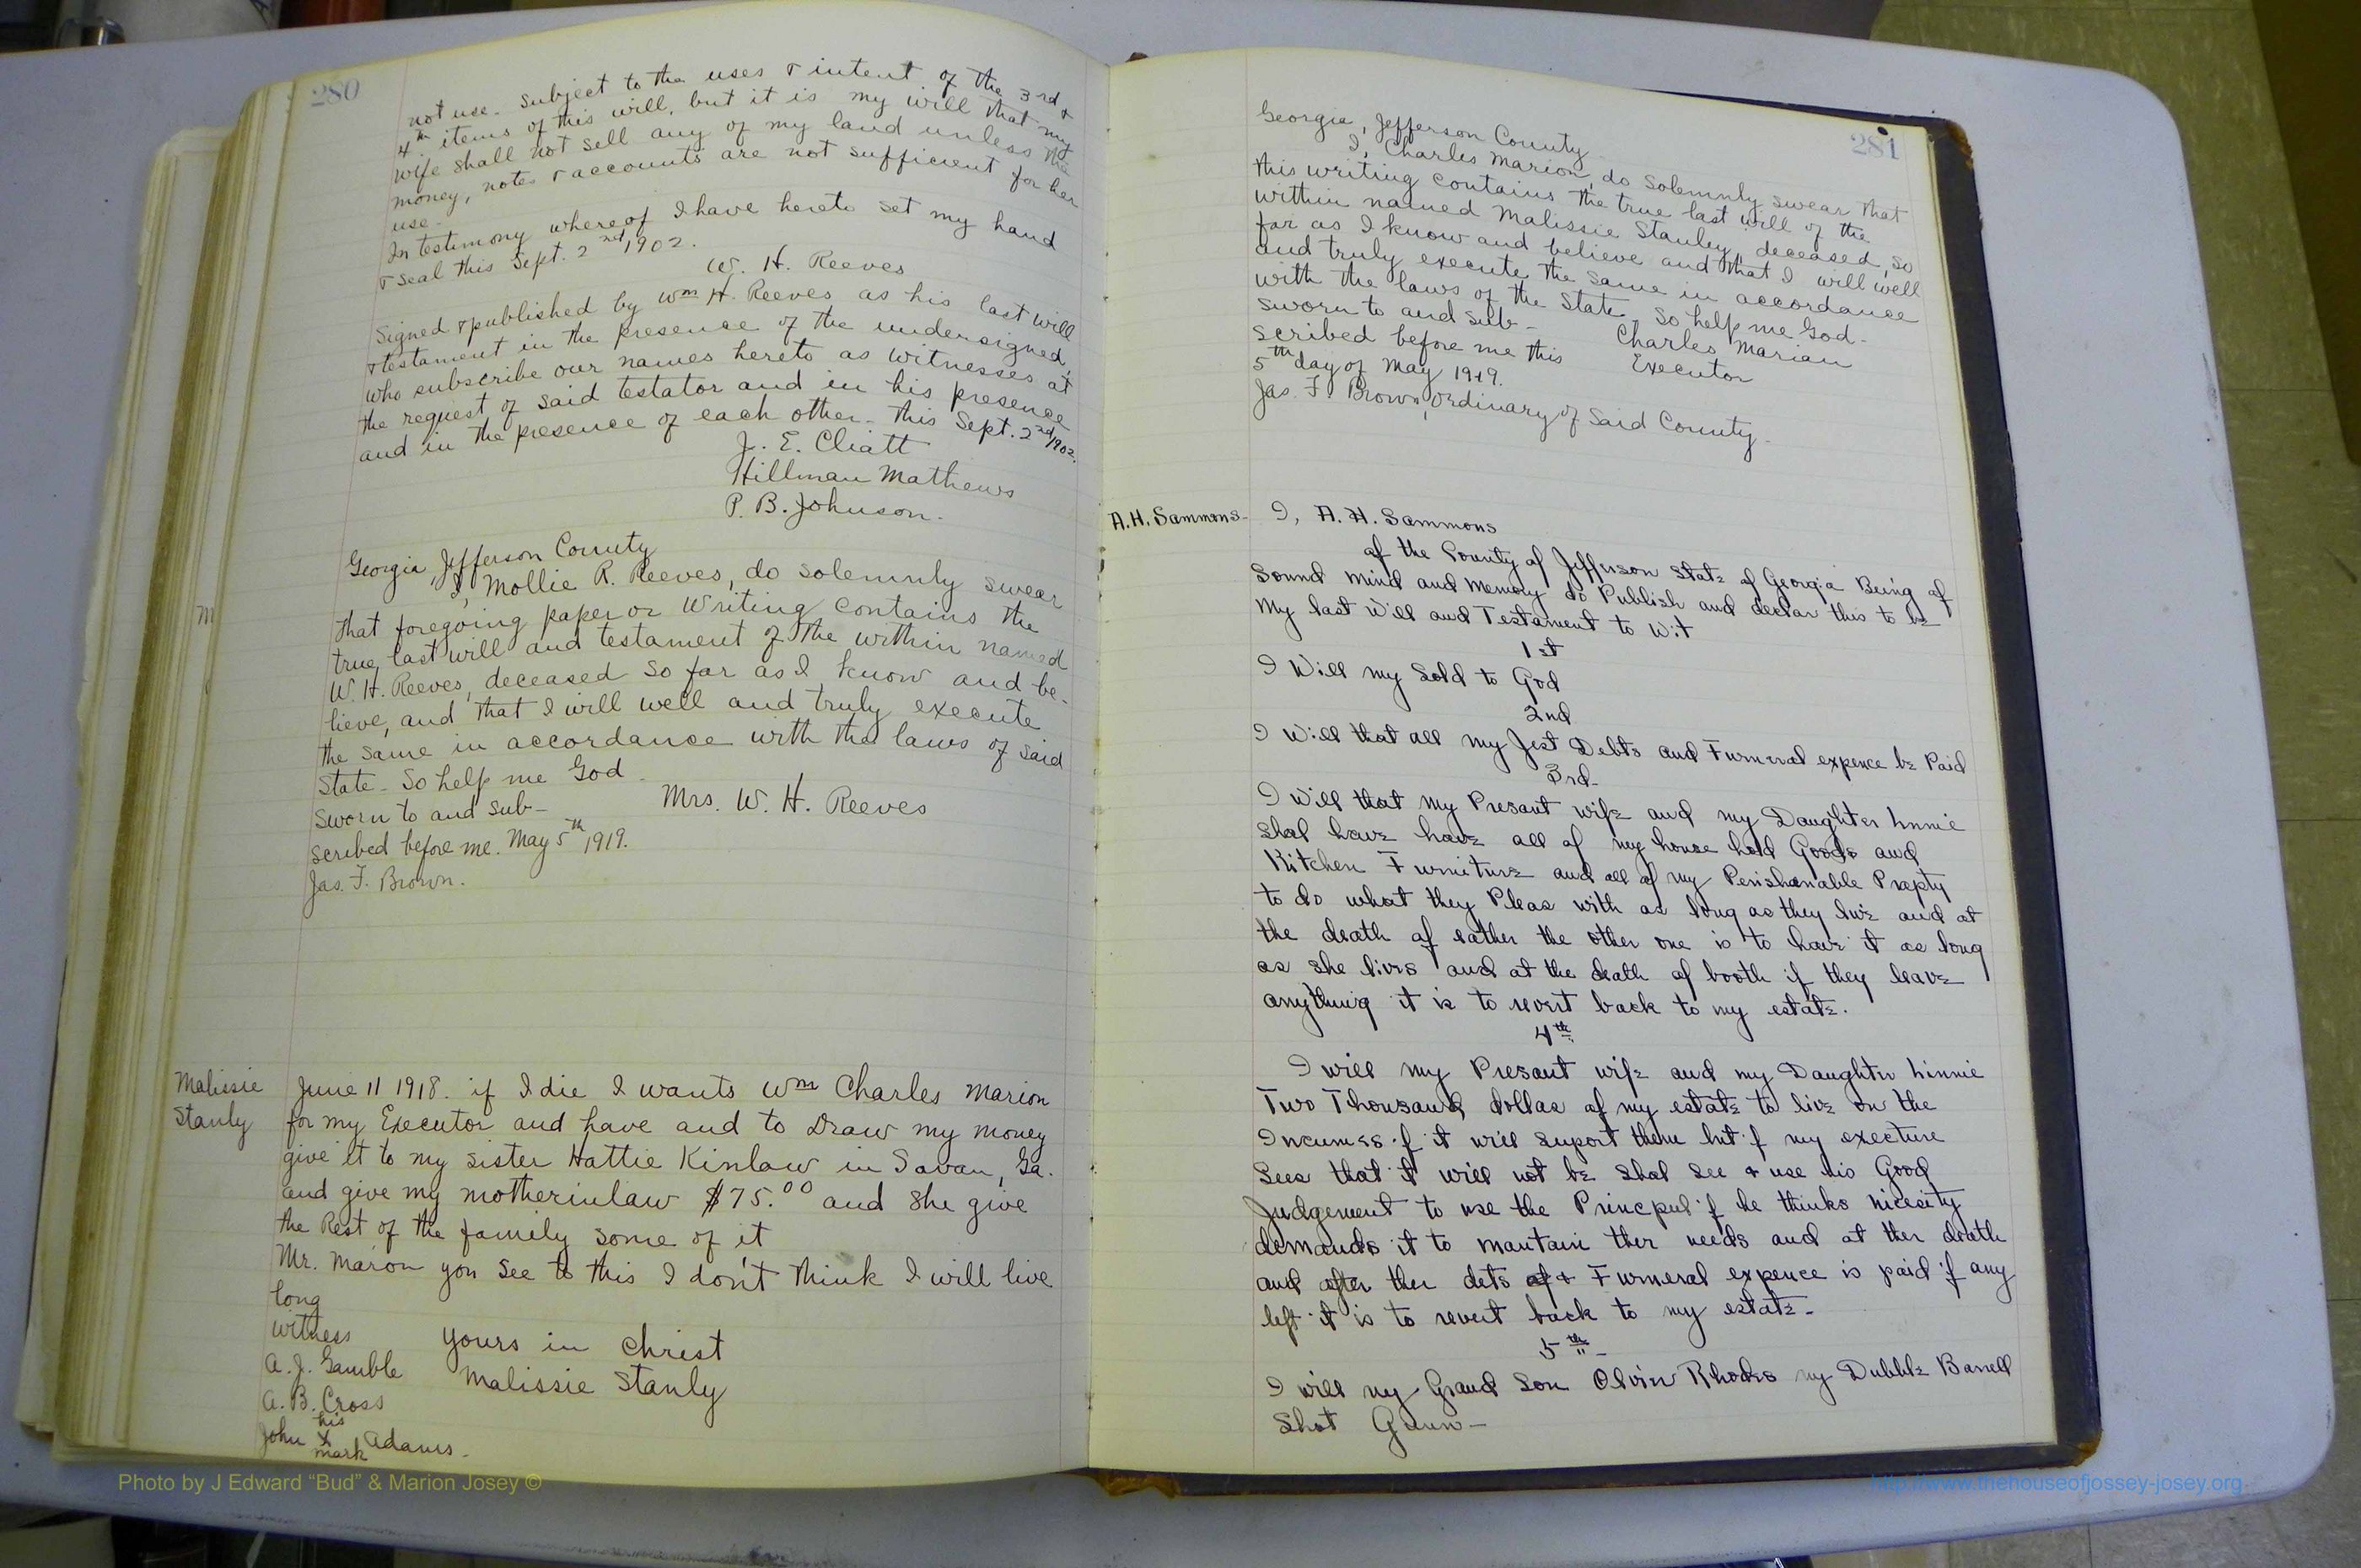 280
not use. Subject to the uses & intent of the 3rd &
4th items of this will, but it is my will that my
wife shall not sell any of my land unless the
money, notes & accounts are not sufficient for her
use.
In testimony whereof I have hereto set my hand
& seal this Sept. 2nd, 1902.
W. H. Reeves
Signed & published by Wm H. Reeves as his last will
& testament in the presence of the undersigned,
who subscribe our names hereto as witnesses at
the request of said testator and in his presence
and in the presence of each other. This Sept. 2nd, 1902.
J. E. Cliatt
Hillman Mathews
P. B. Johnson.
Georgia, Jefferson County
I, Mollie R. Reeves, do solemnly swear
that foregoing paper or writing contains the
true last will and testament of the within named
W. H. Reeves, deceased so far as I know and be-
lieve, and that I will well and truly execute
the same in accordance with the laws of said
State. So help me God.
Sworn to and sub-
Mrs. W. H. Reeves
scribed before me. May 5th, 1919.
Jas. F. Brown.
Malissie
Stanly
June 11 1918. if I die I wants Wm Charles Marion
for my Executor and have and to Draw my money
give it to my sister Hattie Kinlaw in Savan, Ga.
and give my motherinlaw $75.00 and she give
the Rest of the family some of it
Mr. Marion you See to this I don't think I will live
long
witness
yours in Christ
A. J. Gamble
Malissie Stanly
A. B. Cross
John his X mark Adams.
281
Georgia, Jefferson County
I, Charles Marion, do solemnly swear that
this writing contains the true last will of the
within named Malissie Stanley, deceased, so
far as I know and believe and that I will well
and truly execute the same in accordance
with the laws of the State. So help me God.
Sworn to and sub-
Charles Marian
scribed before me this
Executor
5th day of May 1919.
Jas. F. Brown, Ordinary of Said County.
A.H. Sammons-
I, A. H. Sammons
of the County of Jefferson State of Georgia Being of
Sound mind and Memory do Publish and declar this to be
My last Will and Testament to Wit
1st
I Will my Sold to God
2nd
I Will that all my Jest Debts and Furneral expence be Paid
3rd-
I Will that My Presant wife and my Daughter Linnie
Shal have have all of my house hold Goods and
Kitchen Furniture and all of my Perishanable Prapty
to do what they Pleas with as long as they live and at
the death of eather the other one is to have it as long
as she lives and at the death of booth if they leave
anything it is to revert back to my estate.
4th
I will my Presant wife and my Daughter Linnie
Two Thousand dollas of my estate to live on the
Incumes if it will suport them but if my execture
Sees that it will not be shal see & use his Good
Judgement to use the Princpul if he thinks nicesity
demands it to mantain ther needs and at ther death
and after ther dets of & Furneral expence is paid if any
left it is to revert back to my estate.
5th-
I will my Grand Son Olvin Rhodes my Dubble Barrell
Shot Gunn-
Photo by J Edward “Bud” & Marion Josey ©
http://www.thehouseofjossey-josey.org